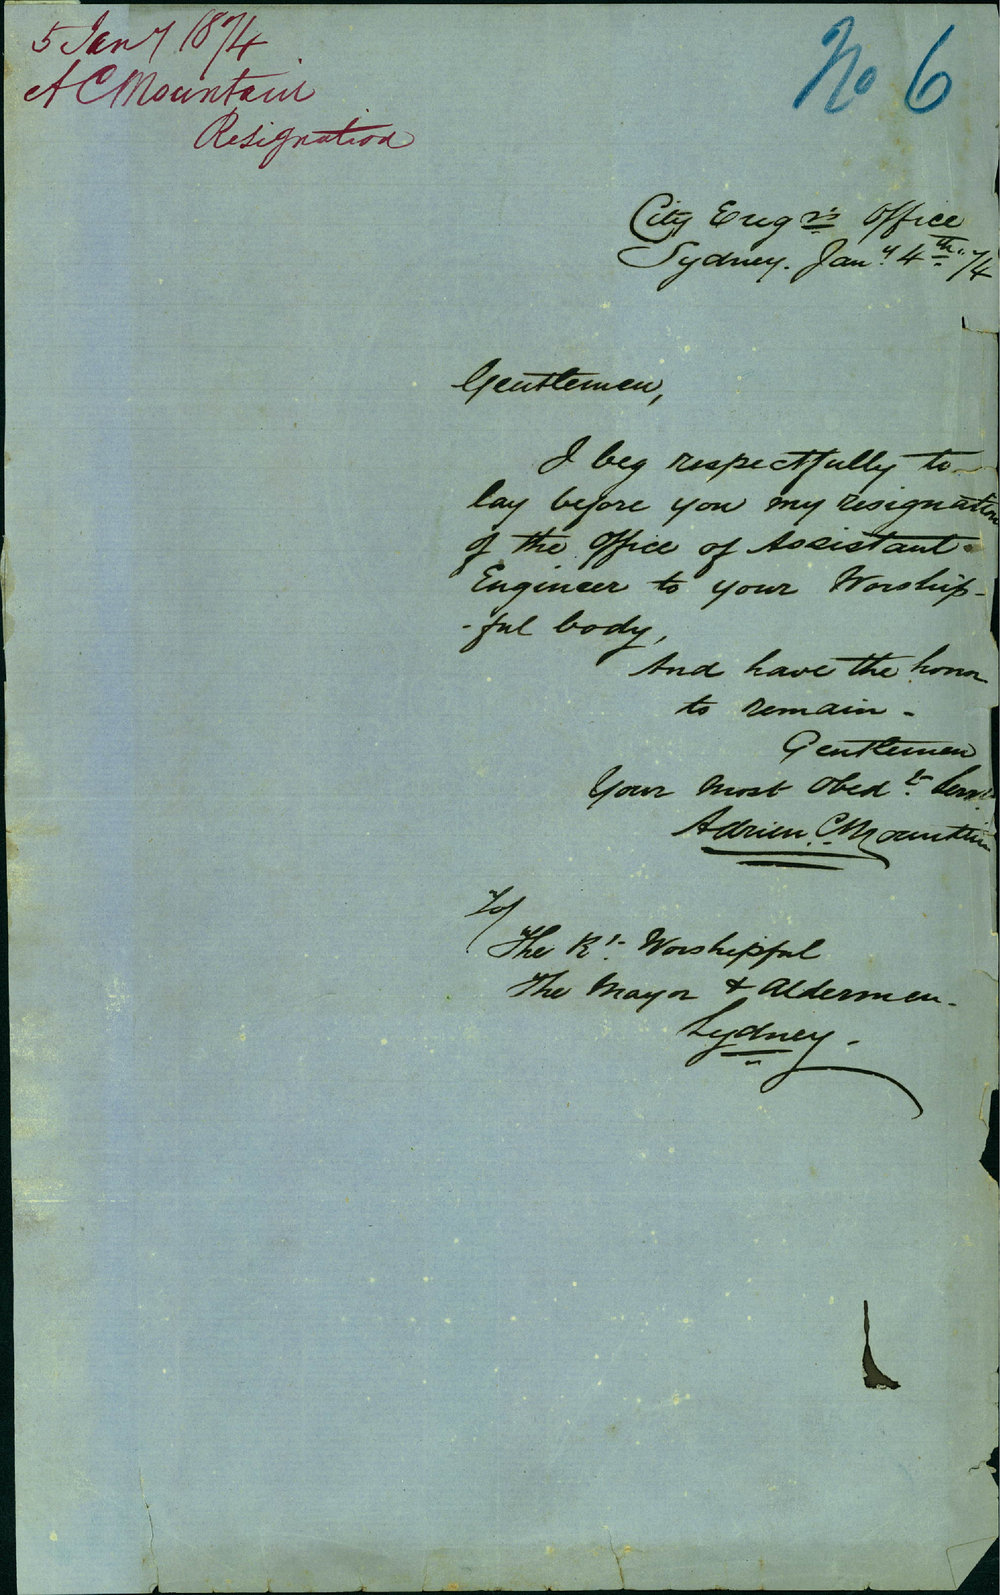 5 Jany 1874
A C Mountain
Resignation
No 6
City Engr's Office
Sydney. Jany. 4th. /74
Gentlemen,
I beg respectfully to
lay before you my resignation
of the office of Assistant
Engineer to your Worship-
-ful body,
And have the honor
to remain -
Gentlemen
Your most Obedt. Servt.
Adrien C Mountain
To/
The Rt. Worshipful
The Mayor & Aldermen -
Sydney -